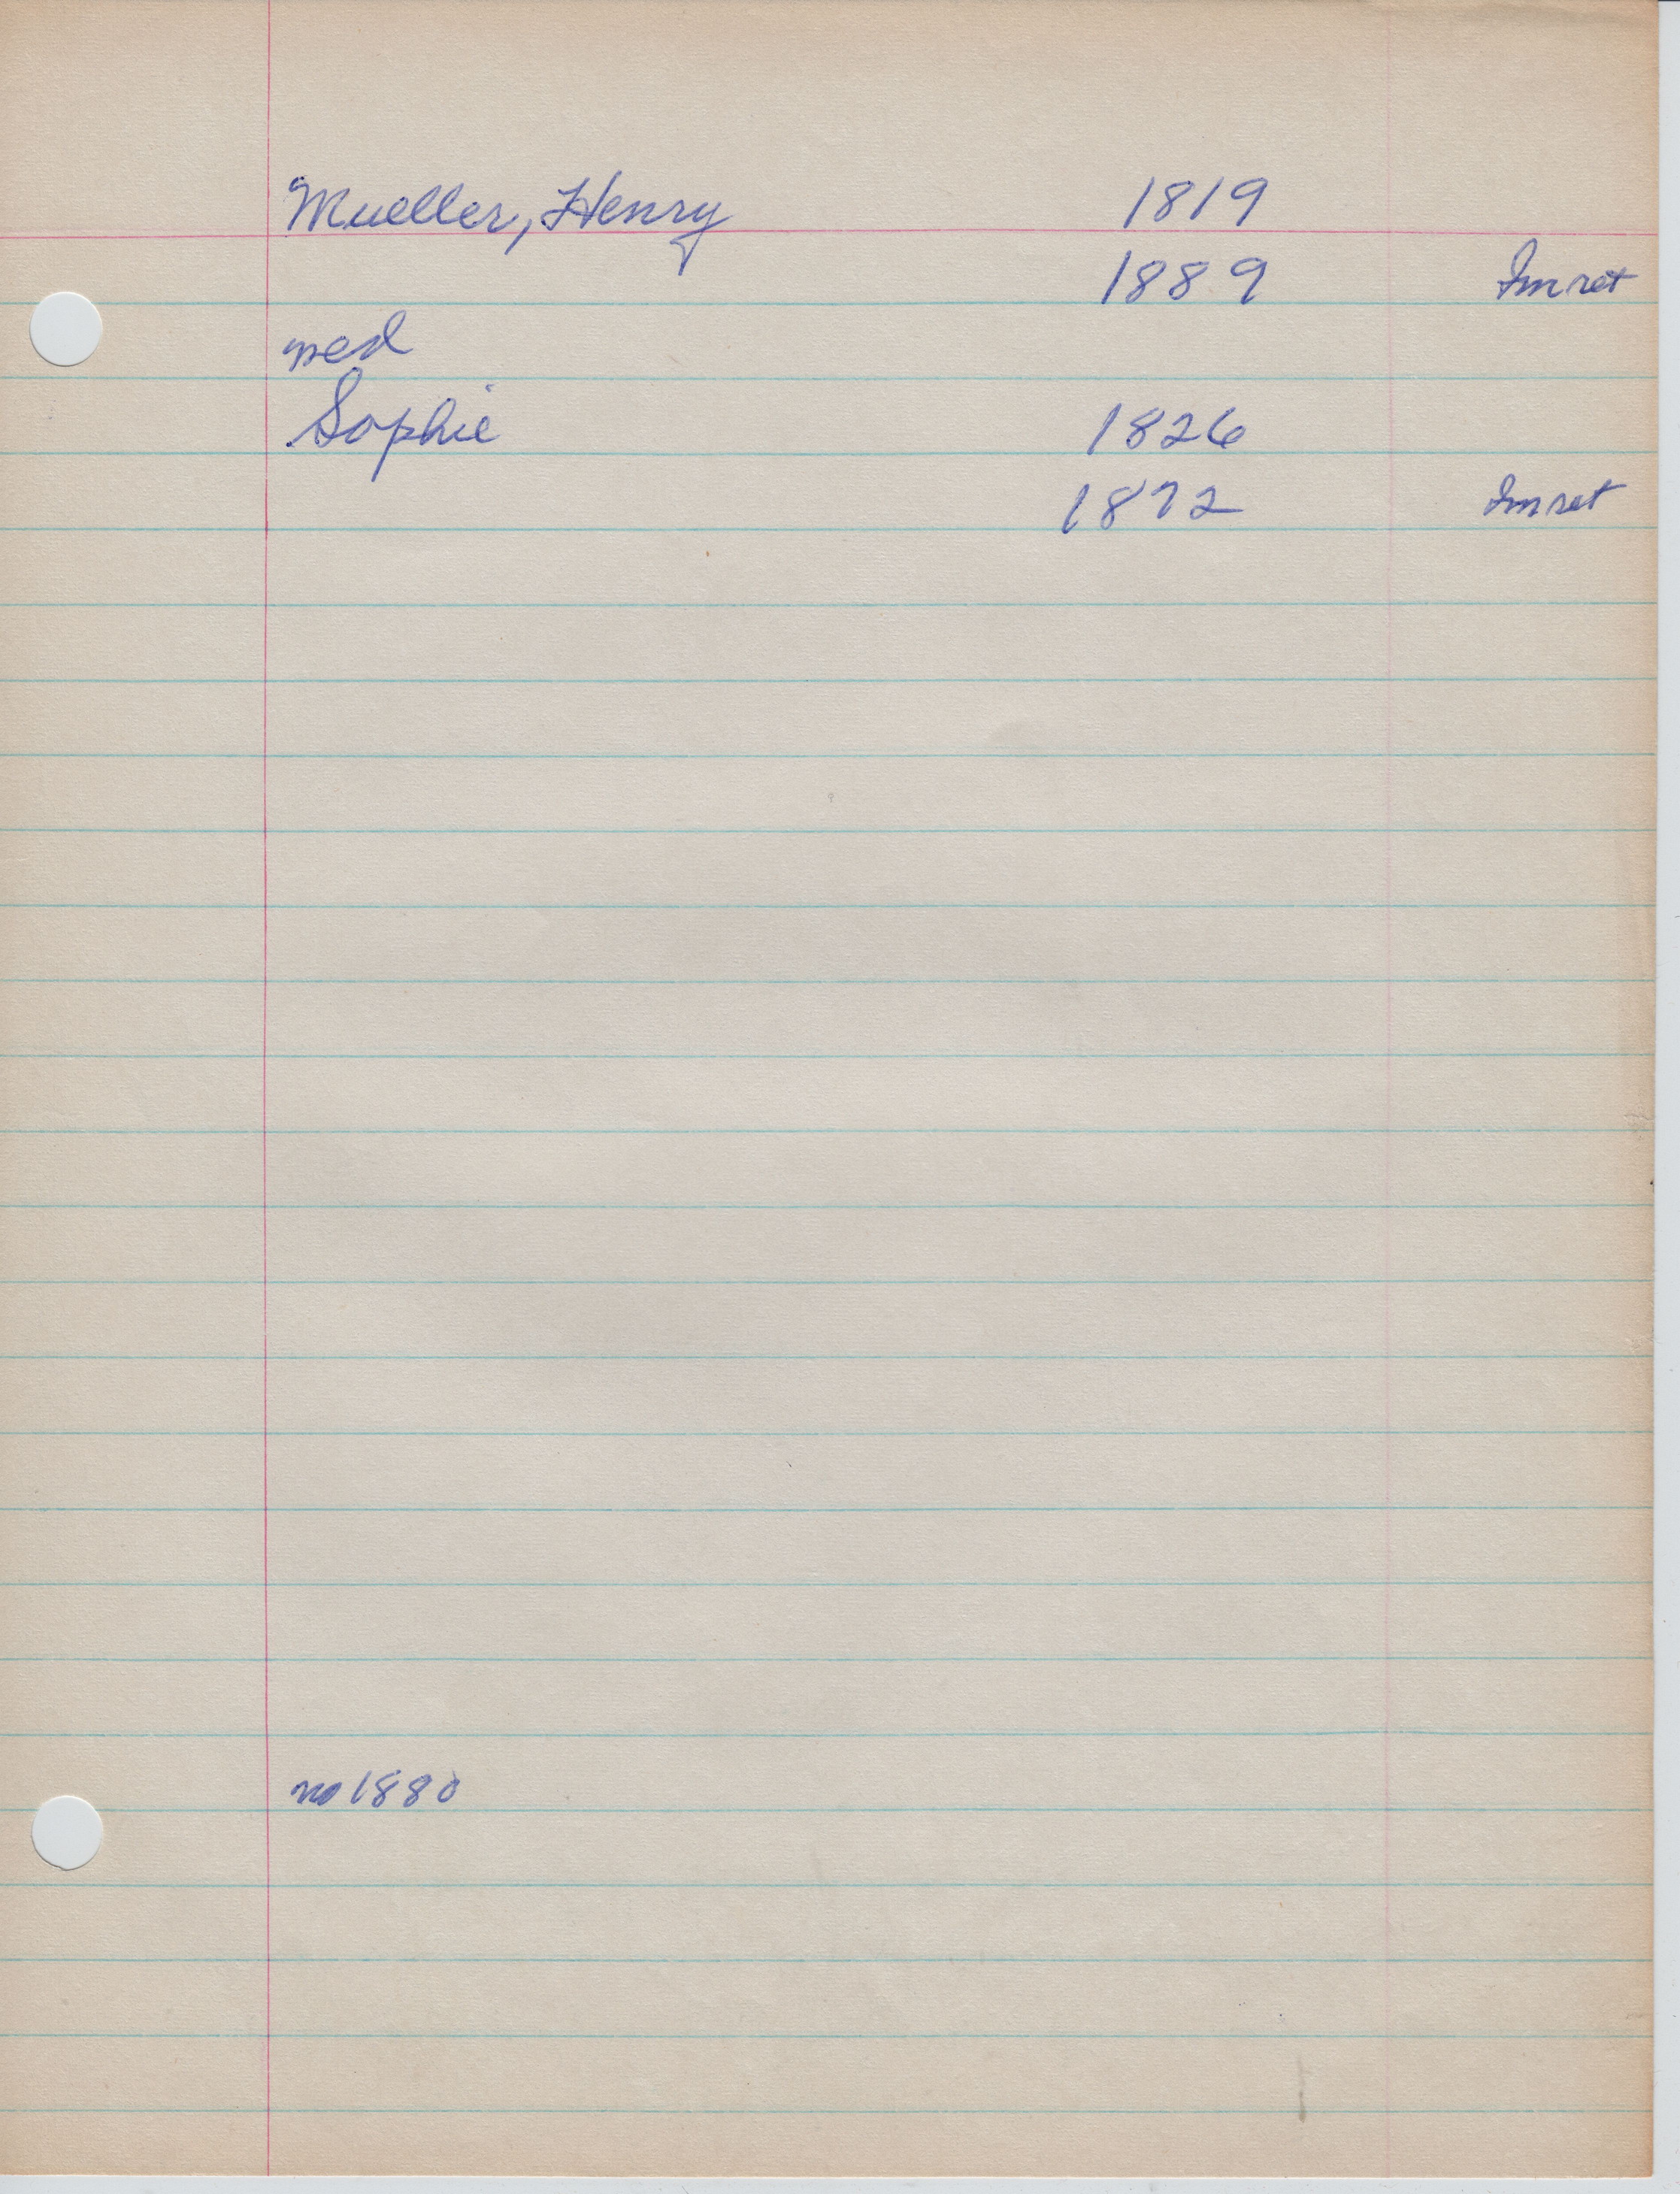 Mueller, Henry 1819
1889 Im ret
med
Sophie 1826
1872 Im ret
no 1880